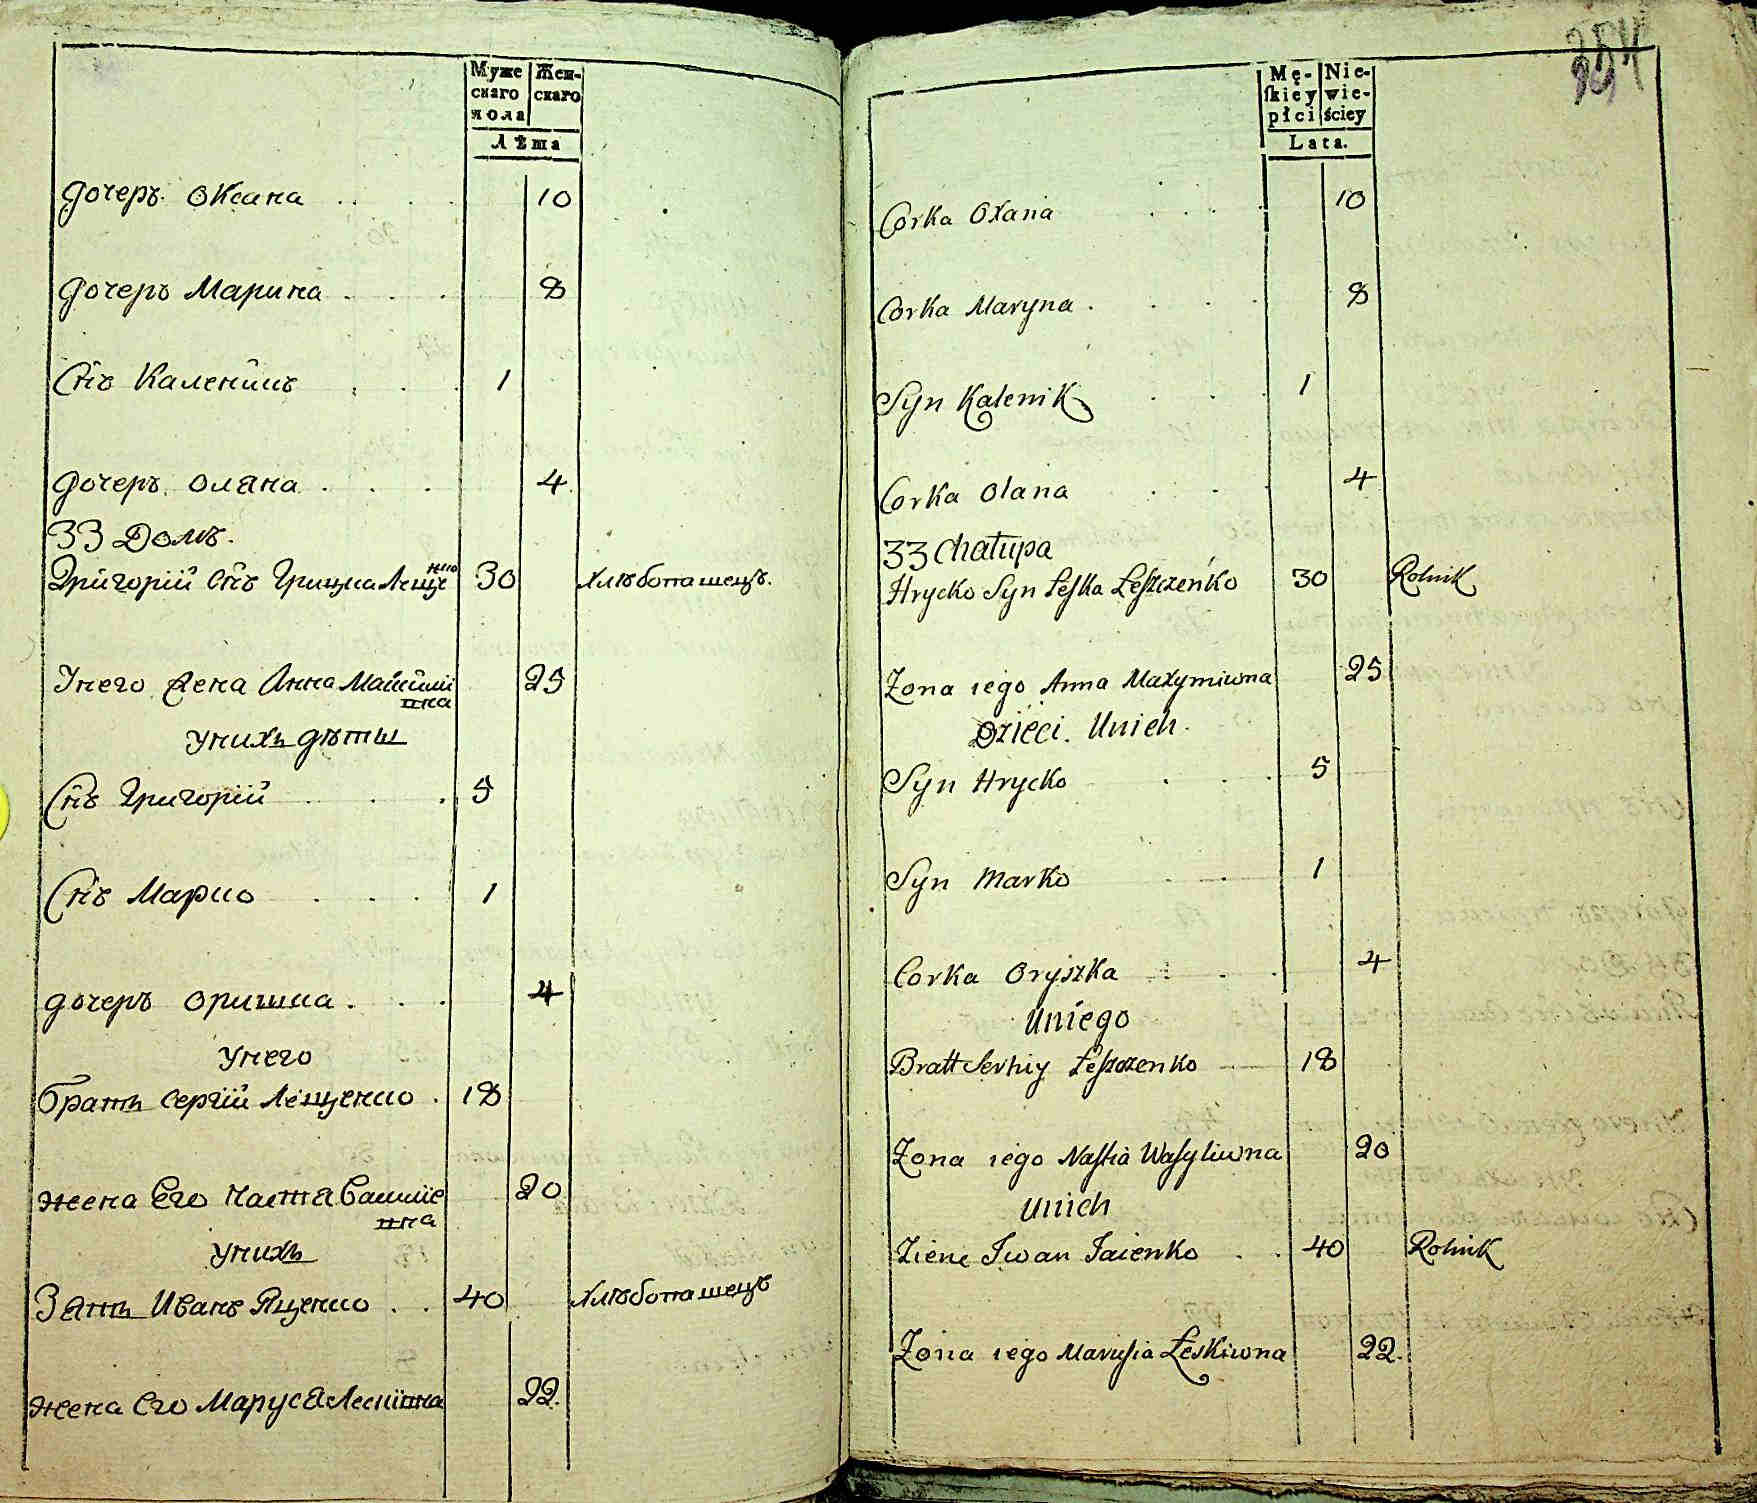 Муже Жен-
скаго скаго
пола
Лѣта
дочеръ Оксана . . . 10
дочеръ Марина . . . 8
Сн҃ъ Каленикъ . . . 1
дочеръ Олѧна . . . 4
33 Домъ.
Григорій Сн҃ъ Грицка Леще 30 Хлѣбопашецъ.
нко
Унего жена Анна Макими 25
вна
унихъ дѣти
Сн҃ъ Григорій . . . 5
Сн҃ъ Марко . . . 1
дочеръ Оришка . . . 4
Унего
братъ Сергій Лещенко . 18
жена Его Настѧ Василїе 20
вна
унихъ
Зѧть Иванъ Яценко . . 40 Хлѣбопашецъ
жена Его Марусѧ Лескївна 22.
254
Mę- Nie-
ſkiey wie-
płci ściey
Lata.
Corka Oxana . . . 10
Corka Maryna . . . 8
Syn Kalenik . . . 1
Corka Olana . . . 4
33 Chałupa
Hrycko Syn Leſka Leſzczeńko 30 Rolnik
Zona iego Anna Maxymiwna 25
Dzieci Unich.
Syn Hrycko . . . 5
Syn Marko . . . 1
Corka Oryszka . . . 4
Uniego
Bratt Serhiy Leſzczenko 18
Zona iego Naſtia Waſyliwna 20
Unich
Ziene Iwan Iaienko . . 40 Rolnik
Zona iego Maruſia Leskiwna 22.